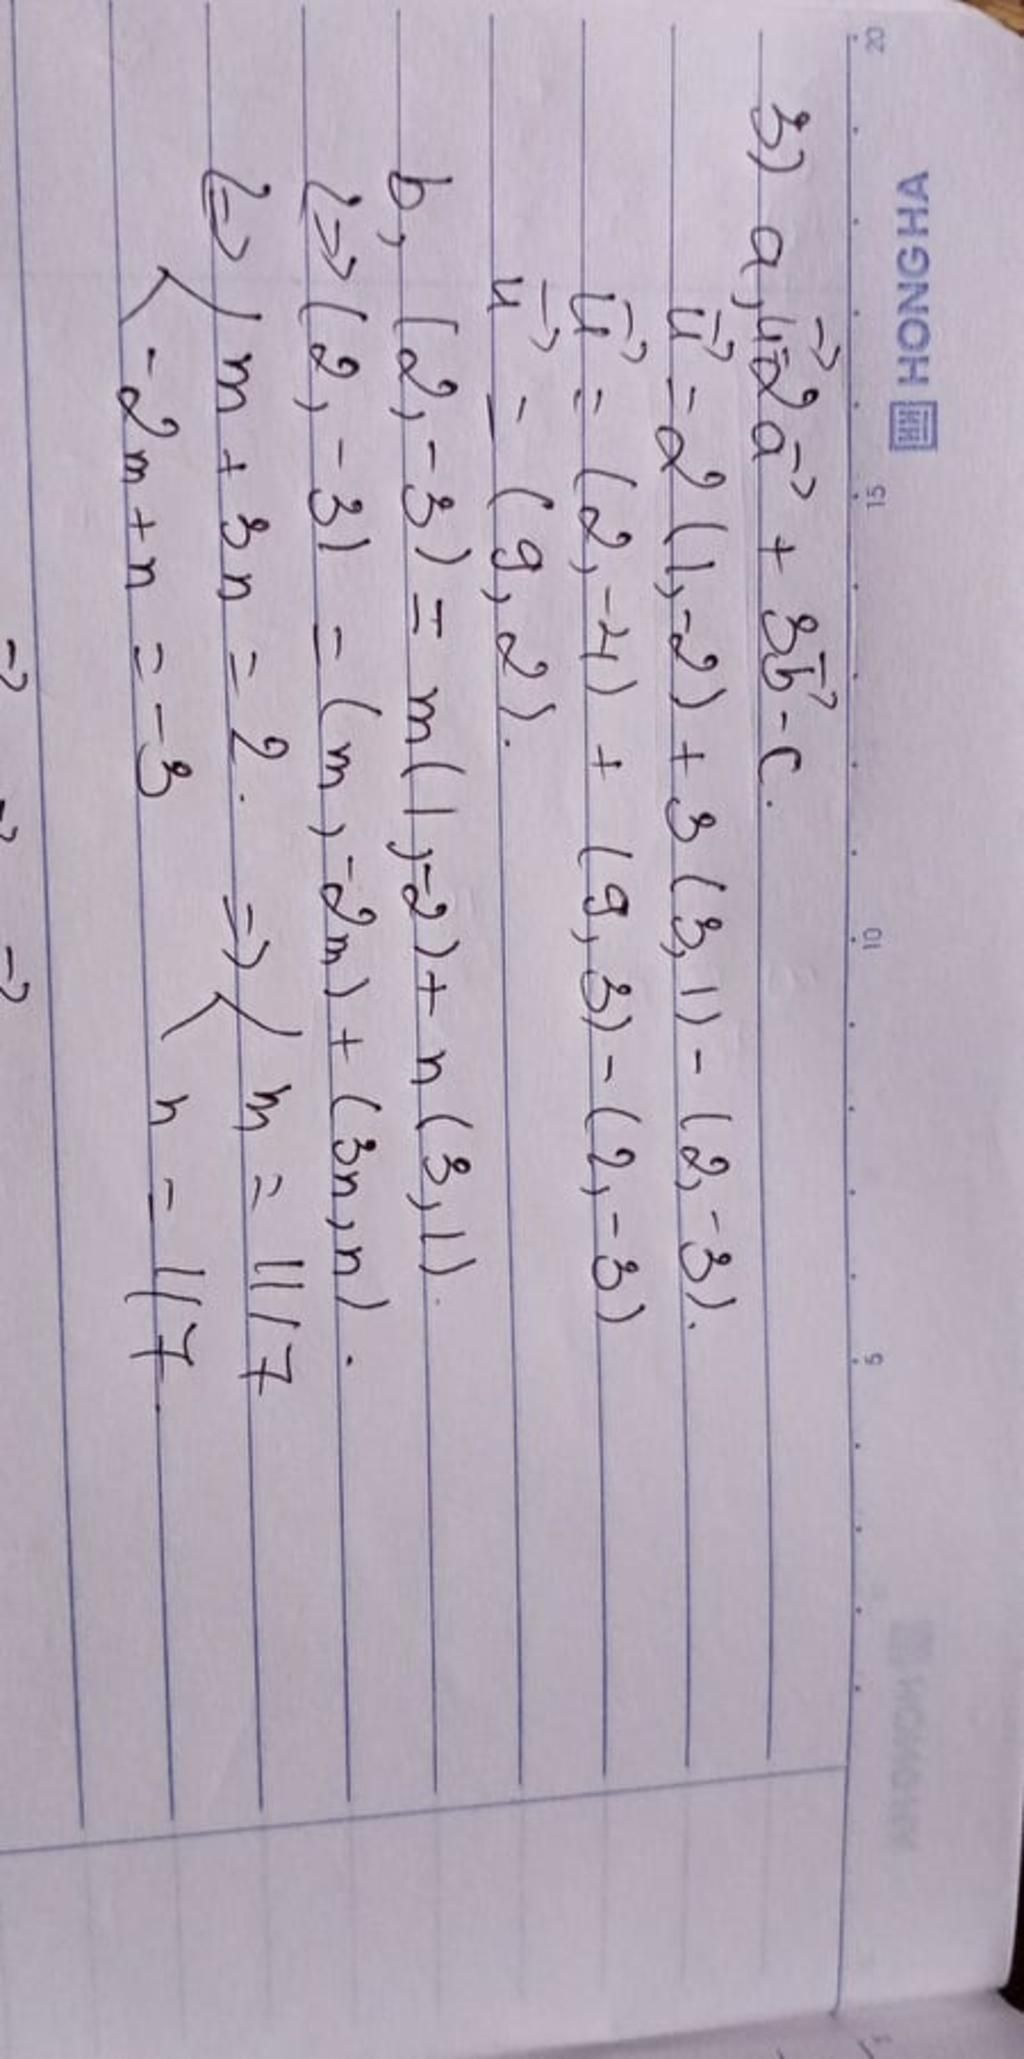 HONGHA
20 15 10 5
3) a, u⃗=2a⃗ + 3b⃗ - c.
u⃗ = 2(1,-2) + 3(3,1) - (2,-3).
u⃗ = (2,-4) + (9,3) - (2,-3)
u⃗ = (9,2).
b, (2,-3) = m(1,-2) + n(3,1).
<=> (2,-3) = (m,-2m) + (3n,n).
<=> { m + 3n = 2. => { m = 11/7
-2m + n = -3 n = 1/7.